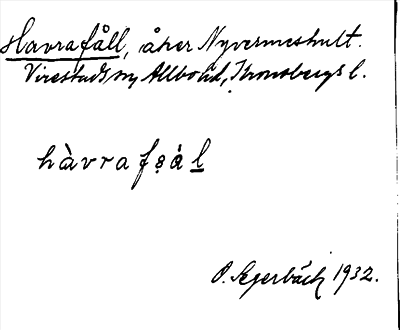 Havrafåll, åker Nyvermeshult.
Virestads sn Allbo hd, Kronobergs l.
hàvrafa̤ål̲
O. Segerbäck 1932.